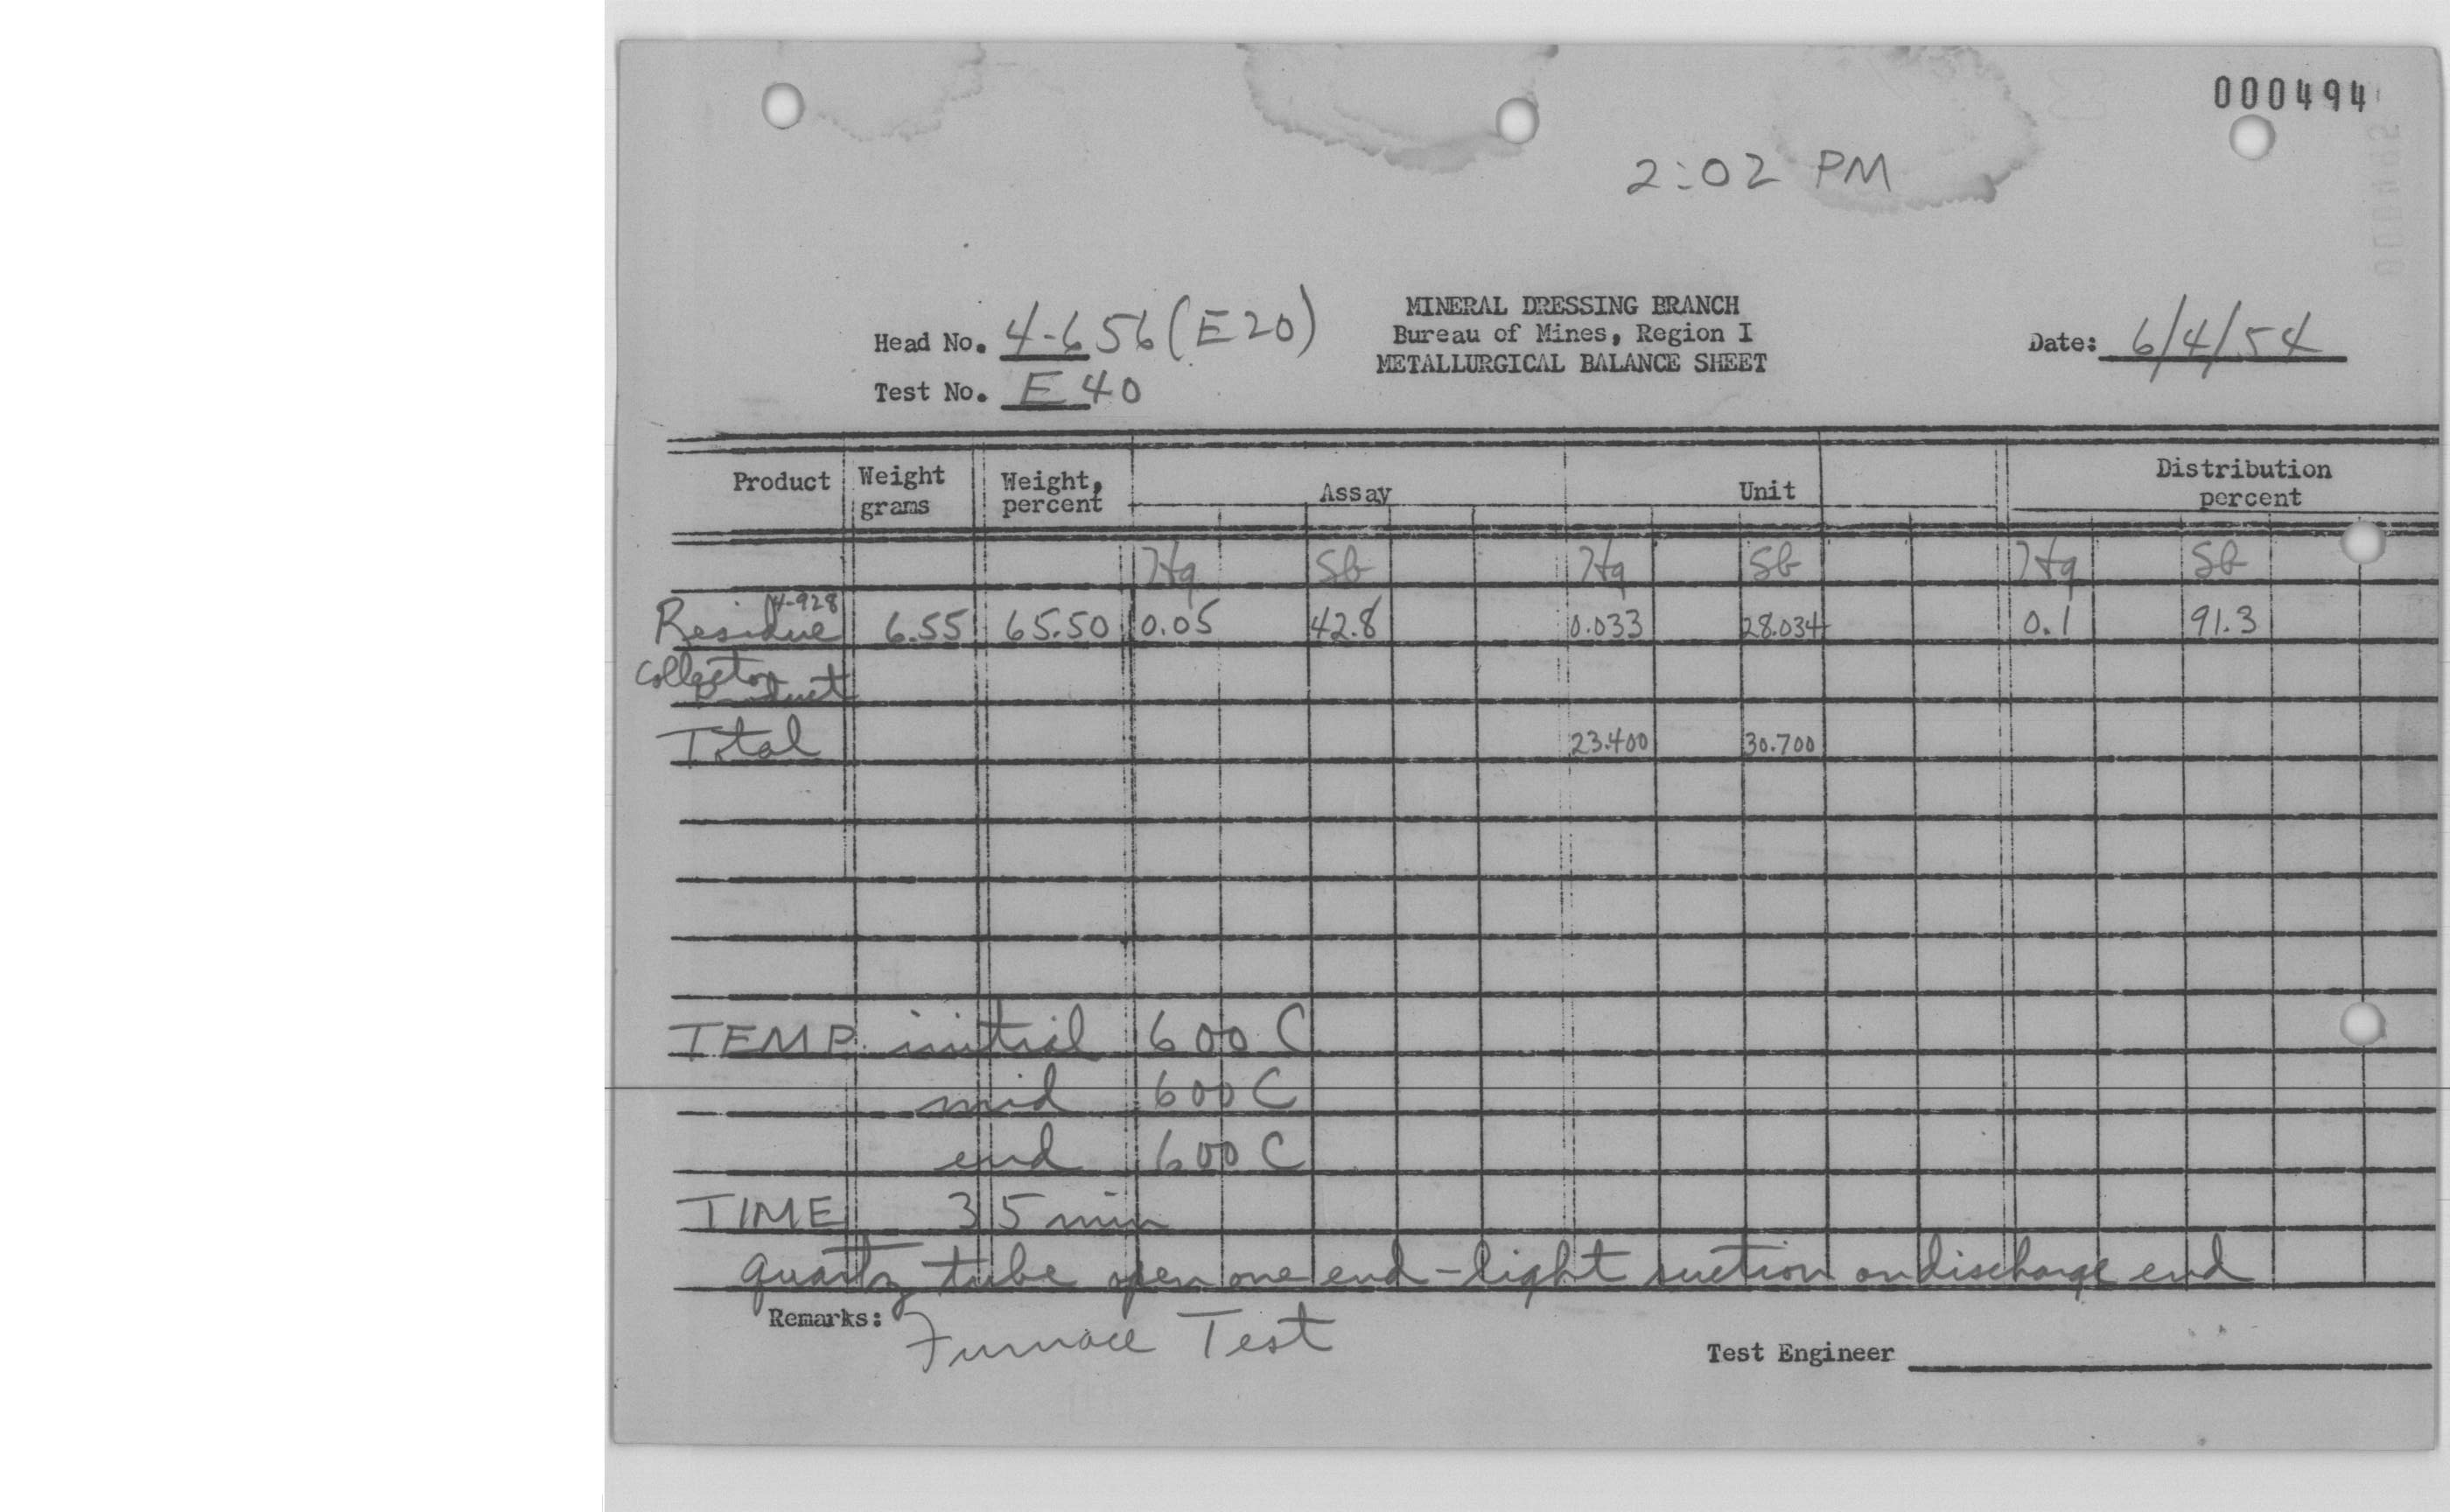 000494
2:02 PM
MINERAL DRESSING BRANCH
Head No. 4-656 (E20) Bureau of Mines, Region I Date: 6/4/54
METALLURGICAL BALANCE SHEET
Test No. E 40
Product Weight grams Weight, percent Assay Unit Distribution percent
Hg Sb Hg Sb Hg Sb
Residue 4-928 6.55 65.50 0.05 42.8 0.033 28.034 0.1 91.3
Collector Product
Total 23.400 30.700
TEMP. initial 600 C
mid 600 C
end 600 C
TIME 35 min
quartz tube open one end - light suction on discharge end
Remarks: Furnace Test
Test Engineer